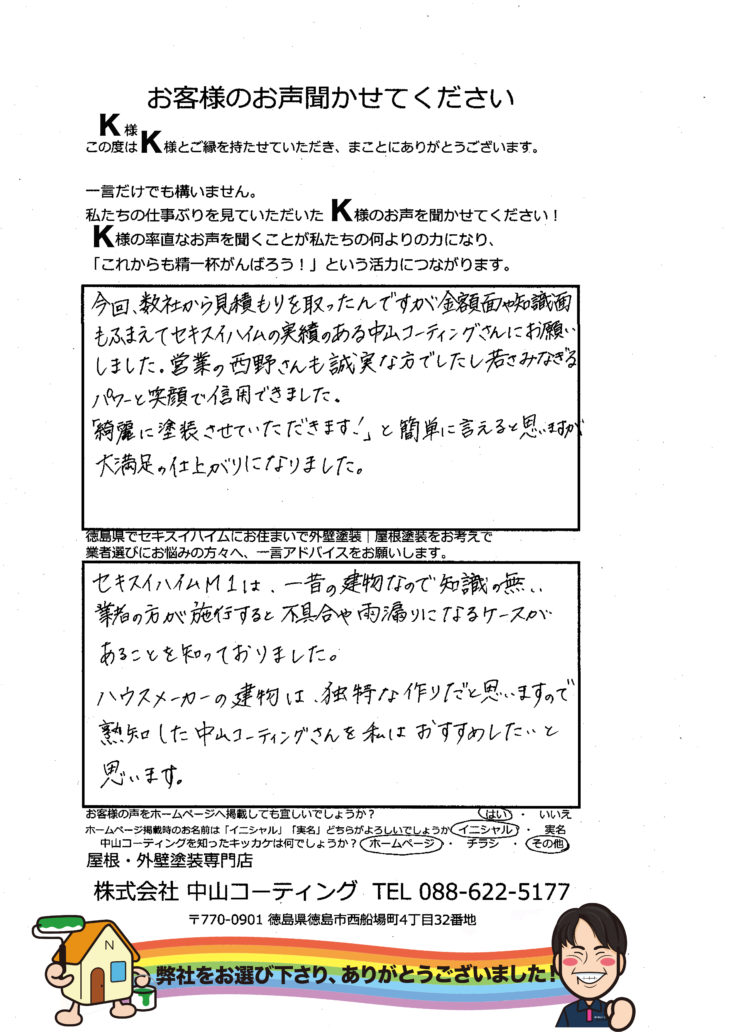 お客様のお声聞かせてください
K様
この度はK様とご縁を持たせていただき、まことにありがとうございます。
一言だけでも構いません。
私たちの仕事ぶりを見ていただいた K様のお声を聞かせてください!
K様の率直なお声を聞くことが私たちの何よりの力になり、
「これからも精一杯がんばろう!」という活力につながります。
今回、数社から見積もりを取ったんですが金額面や知識面
もふまえてセキスイハイムの実績のある中山コーティングさんにお願い
しました。営業の西野さんも誠実な方でしたし若さみなぎる
パワーと笑顔で信用できました。
「綺麗に塗装させていただきます!」と簡単に言えると思いますが
大満足の仕上がりになりました。
徳島県でセキスイハイムにお住まいで外壁塗装|屋根塗装をお考えで
業者選びにお悩みの方々へ、一言アドバイスをお願いします。
セキスイハイムM1は、一昔の建物なので知識の無い
業者の方が施行すると不具合や雨漏りになるケースが
あることを知っておりました。
ハウスメーカーの建物は、独特な作りだと思いますので
熟知した中山コーティングさんを私はおすすめしたいと
思います。
お客様の声をホームページへ掲載しても宜しいでしょうか? はい ・ いいえ
ホームページ掲載時のお名前は「イニシャル」「実名」どちらがよろしいでしょうか イニシャル ・ 実名
中山コーティングを知ったキッカケは何でしょうか? ホームページ ・ チラシ ・ その他
屋根・外壁塗装専門店
株式会社 中山コーティング TEL 088-622-5177
〒770-0901 徳島県徳島市西船場町4丁目32番地
N
弊社をお選び下さり、ありがとうございました!